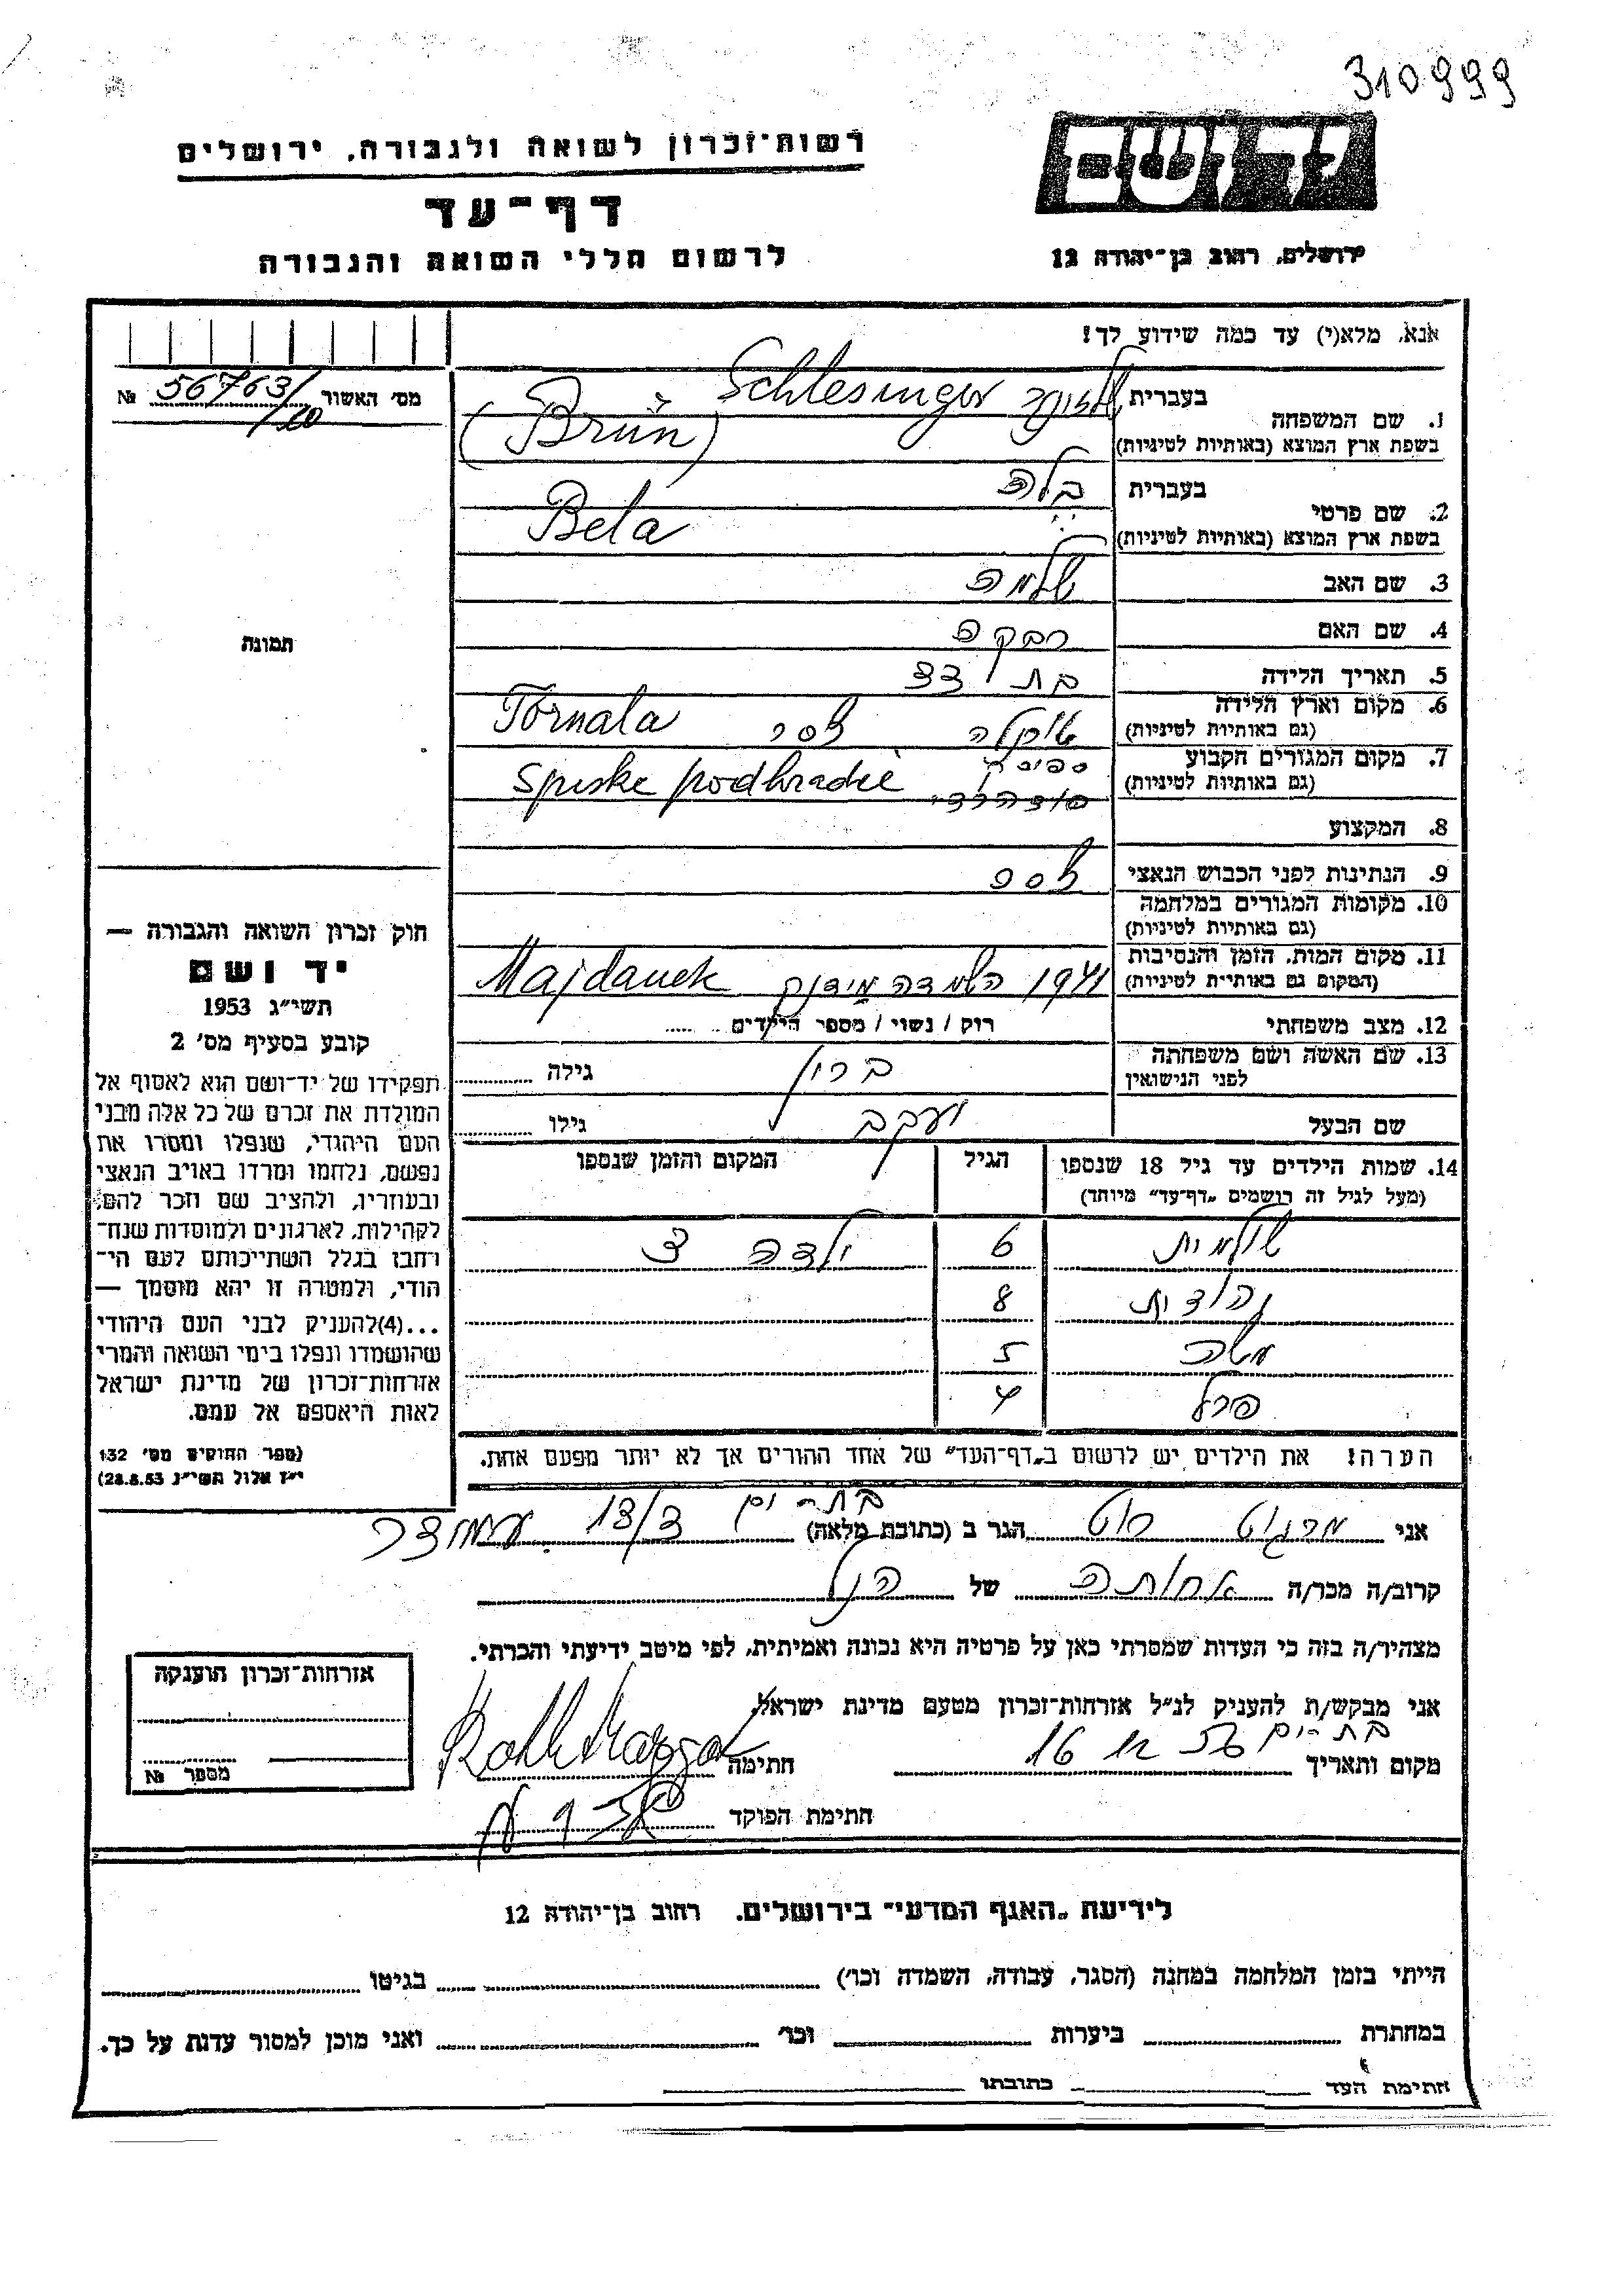 310999
רשות־זכרון לשואה ולגבורה, ירושלים
יד ושם
דף־עד
לרשום חללי השואה והגבורה
ירושלים, רחוב בן־יהודה 12
אנא, מלא(י) עד כמה שידוע לך!
מס׳ האשור 56763/20 №
1. שם המשפחה
בעברית שלזינגר Schlesinger
בשפת ארץ המוצא (באותיות לטיניות) (Brün)
2. שם פרטי
בעברית בלה
בשפת ארץ המוצא (באותיות לטיניות) Bela
3. שם האב שלמה
4. שם האם רבקה
5. תאריך הלידה בת 33
6. מקום וארץ הלידה
(גם באותיות לטיניות) טורנלה צ׳סר Tornala
7. מקום המגורים הקבוע
(גם באותיות לטיניות) Spiske podhradie
8. המקצוע
9. הנתינות לפני הכבוש הנאצי
10. מקומות המגורים במלחמה
(גם באותיות לטיניות)
11. מקום המות, הזמן והנסיבות
(המקום גם באותיות לטיניות) 1941 השמדה מידנק Majdanek
12. מצב משפחתי רוק / נשוי / מספר הילדים
13. שם האשה ושם משפחתה
לפני הנישואין ברון גילה
שם הבעל יעקב גילו
14. שמות הילדים עד גיל 18 שנספו
(מעל לגיל זה רושמים „דף־עד״ מיוחד)
הגיל
המקום והזמן שנספו
שולמית 6
יהודית 8
משה 5
פרל 4
הערה! את הילדים יש לרשום ב„דף־העד״ של אחד ההורים אך לא יותר מפעם אחת.
תמונה
חוק זכרון השואה והגבורה —
יד ושם
תשי״ג 1953
קובע בסעיף מס׳ 2
תפקידו של יד־ושם הוא לאסוף אל
המולדת את זכרם של כל אלה מבני
העם היהודי, שנפלו ומסרו את
נפשם, נלחמו ומרדו באויב הנאצי
ובעוזריו, ולהציב שם וזכר להם,
לקהילות, לארגונים ולמוסדות שנח־
רחבו בגלל השתייכותם לעם הי־
הודי, ולמטרה זו יהא מוסמך —
...(4)להעניק לבני העם היהודי
שהושמדו ונפלו בימי השואה והמרי
אזרחות־זכרון של מדינת ישראל
לאות היאספם אל עמם.
(ספר החוקים מס׳ 132
י״ז אלול תשי״ג 28.8.53)
אני מרגוט רוט הגר ב (כתובת מלאה) בת־ים
קרוב/ה מכר/ה אחותה של הנ״ל
מצהיר/ה בזה כי העדות שמסרתי כאן על פרטיה היא נכונה ואמיתית, לפי מיטב ידיעתי והכרתי.
אני מבקש/ת להעניק לנ״ל אזרחות־זכרון מטעם מדינת ישראל.
מקום ותאריך בת־ים חתימה Roth Margot
חתימת הפוקד
אזרחות־זכרון הוענקה
מספר №
לידיעת „האגף המדעי״ בירושלים. רחוב בן־יהודה 12
הייתי בזמן המלחמה במחנה (הסגר, עבודה, השמדה וכו׳) בגיטו
במחתרת ביערות וכו׳ ואני מוכן למסור עדות על כך.
חתימת העד כתובתו